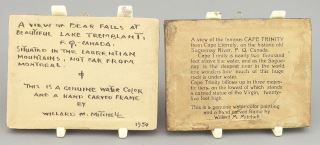 A VIEW OF BEAR FALLS AT
BEAUTIFUL LAKE TREMBLANT,
P.Q. CANADA.
SITUATED IN THE LAURENTIAN
MOUNTAINS, NOT FAR FROM
MONTREAL.
THIS IS A GENUINE WATER COLOR
AND A HAND CARVED FRAME
BY
WILLARD M. MITCHELL
1950
A view of the famous CAPE TRINITY
from Cape Eternity, on the historic old
Saguenay River, P. Q. Canada.
Cape Trinity is nearly two thousand
feet above the water, and as the Saguenay
is the deepest river in the world
one wonders how much of this huge
rock is under water.
Cape Trinity follows up in three moun-
tains, on the lowest of which stands
a carved statue of the Virgin, twenty-
five feet high.
This is a genuine water-color painting
and a hand carved frame by
Willard M. Mitchell